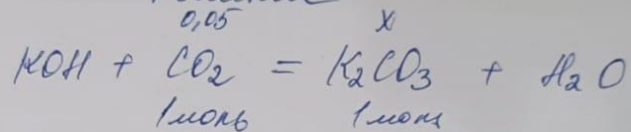 0,05 x
KOH + CO₂ = K₂CO₃ + H₂O
1моль 1моль